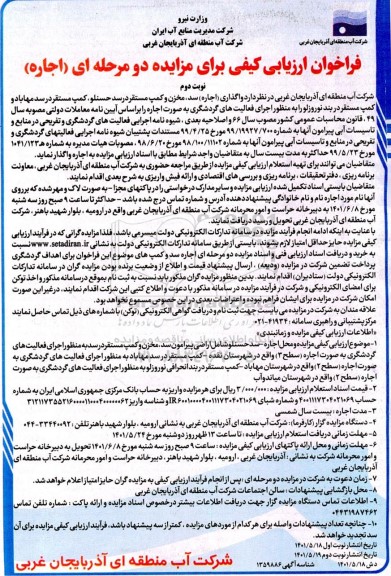 وزارت نیرو
شرکت مدیریت منابع آب ایران
شرکت آب منطقه ای آذربایجان غربی
شرکت آب منطقه ای آذربایجان غربی
فراخوان ارزیابی کیفی برای مزایده دو مرحله ای (اجاره)
نوبت دوم
شرکت آب منطقه ای آذربایجان غربی در نظر دارد واگذاری (اجاره) سد، مخزن و کمپ مستقر در سد حسنلو، کمپ مستقر در سد مهاباد و
کمپ مستقر در بند نوروزلو را به منظور اجرای فعالیت های گردشگری به صورت اجاره را براساس آیین نامه معاملات دولتی مصوبه سال
۴۹، قانون محاسبات عمومی کشور مصوب سال ۶۶ و اصلاحیه بعدی، شیوه نامه اجرایی فعالیت های گردشگری و تفریحی در منابع و
تاسیسات آبی پیرامون آنها به شماره
تفریحی در منابع و تاسیسات آبی پیرامون آنها به شماره
حداکثر به مدت بیست سال، به متقاضیان واجد شرایط مطابق با اسناد ارزیابی مزایده به اجاره واگذار نماید.
متقاضیان می توانند برای تهیه استعلام ارزیابی کیفی مزایده از طریق مراجعه حضوری به شرکت آب منطقه ای آذربایجان غربی، معاونت
برنامه ریزی، دفتر تحقیقات، برنامه ریزی و بررسی های اقتصادی و ارائه فیش واریزی به شرح بعدی اقدام نمایند.
متقاضیان بایستی اسناد تکمیل شده ارزیابی مزایده و سایر مدارک درخواستی را در پاکتهای مجزا - به صورت لاک و مهر شده که بر روی
آنها نام مورد اجاره نام و نام خانوادگی پیشنهاد دهنده، آدرس و شماره تماس درج شده باشد - حداکثر تا ساعت ۹ صبح روز سه شنبه
به دبیرخانه حراست و امور محرمانه شرکت آب منطقه ای آذربایجان غربی واقع در ارومیه، بلوار شهید باهنر، شرکت
آب منطقه ای آذربایجان غربی تحویل و رسید دریافت نمایند.
با عنایت به اینکه ادامه انجام فرآیند مزایده در سامانه تدارکات الکترونیکی دولت میسر می باشد، فلذا مزایده گرانی که در فرآیند ارزیابی
کیفی مزایده حایز حداقل امتیاز لازم بشوند، بایستی از طریق سامانه تدارکات الکترونیکی دولت به نشانی www.setadiran.ir نسبت
به خرید و دریافت اسناد ارزیابی فنی و اسناد مزایده دو مرحله ای اجاره سد و کمپ های موضوع این فراخوان برای گذراندن فرآیند
پرداخت تضمین شرکت در مزایده (ودیعه)، ارسال پیشنهاد قیمت و اطلاع از وضعیت برنده بودن مزایده گران در سامانه تدارکات
الکترونیکی دولت (ستاد ایران) اقدام نمایند.
برای امضای الکترونیکی و شرکت در فرآیند مزایده در سامانه مذکور با دعوت و اطلاع کتبی این شرکت اقدام نمایند. در غیر این صورت
امکان شرکت در مزایده برای ایشان فراهم نبوده و اعتراضات بعدی در این خصوص مسموع نخواهد بود.
علاقه مندان به شرکت در مزایده می بایست جهت ثبت نام و دریافت گواهی الکترونیکی (توکن) با شماره های ذیل تماس حاصل نمایند
مرکز پشتیبانی و راهبری سامانه: ۴۱۹۳۴-۰۲۱
اطلاعات ارزیابی کیفی مزایده و زمانبندی:
۱- موضوع ارزیابی کیفی مزایده و محل اجاره: سد حسنلو شامل اراضی پیرامون سد، مخزن و کمپ مستقر در سد به منظور اجرای فعالیت های
گردشگری به صورت اجاره (سطح ۲) واقع در شهرستان نقده - کمپ مستقر در سد مهاباد به منظور اجرای فعالیت های گردشگری به
صورت اجاره (سطح ۲) واقع در شهرستان مهاباد - کمپ مستقر در بند انحرافی نوروزلو به منظور اجرای فعالیت های گردشگری به صورت
اجاره (سطح ۲) واقع در شهرستان میاندوآب
۲- قیمت اسناد استعلام ارزیابی مزایده: ۲/۰۰۰/۰۰۰ ریال برای هر مزایده واریز به حساب بانک مرکزی جمهوری اسلامی ایران به شماره
۳- مدت اجاره: بیست سال شمسی
۴- دستگاه مزایده گزار (کارفرما): شرکت آب منطقه ای آذربایجان غربی به نشانی ارومیه، بلوار شهید باهنر تلفن:
۵- مهلت زمانی دریافت استعلام ارزیابی مزایده: تا ساعت ۱۳ ظهر روز دوشنبه مورخ ۱۴۰۱/۵/۲۴
۶- مهلت زمانی و محل ارائه پاکتهای ارزیابی کیفی مزایده: ساعت ۹ صبح روز سه شنبه مورخ ۱۴۰۱/۶/۸ تحویل به دبیرخانه حراست
و امور محرمانه شرکت به نشانی: آذربایجان غربی، ارومیه، بلوار شهید باهنر، دبیرخانه حراست و امور محرمانه شرکت آب منطقه ای
آذربایجان غربی
۷- زمان دعوت به شرکت در مزایده دو مرحله ای: پس از انجام فرآیند ارزیابی کیفی به مزایده گران حایز امتیاز اعلام خواهد شد.
۸- محل بازگشایی پیشنهادات: سالن اجتماعات شرکت آب منطقه ای آذربایجان غربی
۹- اطلاعات تماس دستگاه مزایده گزار جهت دریافت اطلاعات بیشتر در خصوص اسناد مزایده و ارائه پاکت: شماره تلفن تماس
۰۴۴۳۱۹۸۷۴۶۲
۱۰- چنانچه تعداد پیشنهادات واصله برای هر کدام از موردهای مزایده، کمتر از سه پیشنهاد باشد، فرآیند ارزیابی کیفی مزایده برای آن
سد تجدید خواهد شد.
تاریخ انتشار نوبت اول ۱۴۰۱/۵/۱۸
تاریخ انتشار نوبت دوم ۱۴۰۱/۵/۱۹
شناسه آگهی ۱۳۵۹۸۸۶
شرکت آب منطقه ای آذربایجان غربی